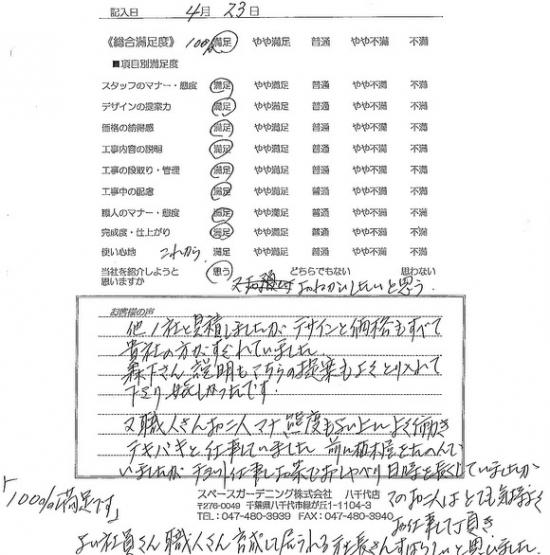 記入日 4月 23日
《総合満足度》 100% 満足 やや満足 普通 やや不満 不満
■項目別満足度
スタッフのマナー・態度 満足 やや満足 普通 やや不満 不満
デザインの提案力 満足 やや満足 普通 やや不満 不満
価格の納得感 満足 やや満足 普通 やや不満 不満
工事内容の説明 満足 やや満足 普通 やや不満 不満
工事の段取り・管理 満足 やや満足 普通 やや不満 不満
工事中の配慮 満足 やや満足 普通 やや不満 不満
職人のマナー・態度 満足 やや満足 普通 やや不満 不満
完成度・仕上がり 満足 やや満足 普通 やや不満 不満
使い心地 これから 満足 やや満足 普通 やや不満 不満
当社を紹介しようと 思う どちらでもない 思わない
思いますか
又 おねがいしたいと思う.
お客様の声
他1社と見積しましたが デザインと価格もすべて
貴社の方がすぐれていました
森下さん 説明もこちらの提案もよくとり入れて
下さり 嬉しかったです.
又 職人さんお二人 マナー 態度も よく働き
テキパキと仕事していました 前に植木屋さんたのんで
いましたが 仕事しお茶でおしゃべり 日時を長くしていましたが
このお二人はとても気持よく
お仕事して頂き
「100%満足です」
よい社員さん 職人さん 育成して居られる社長さんすばらしいと思いました
スペースガーデニング株式会社 八千代店
〒276-0049 千葉県八千代市緑が丘1-1104-3
TEL:047-480-3939 FAX:047-480-3940